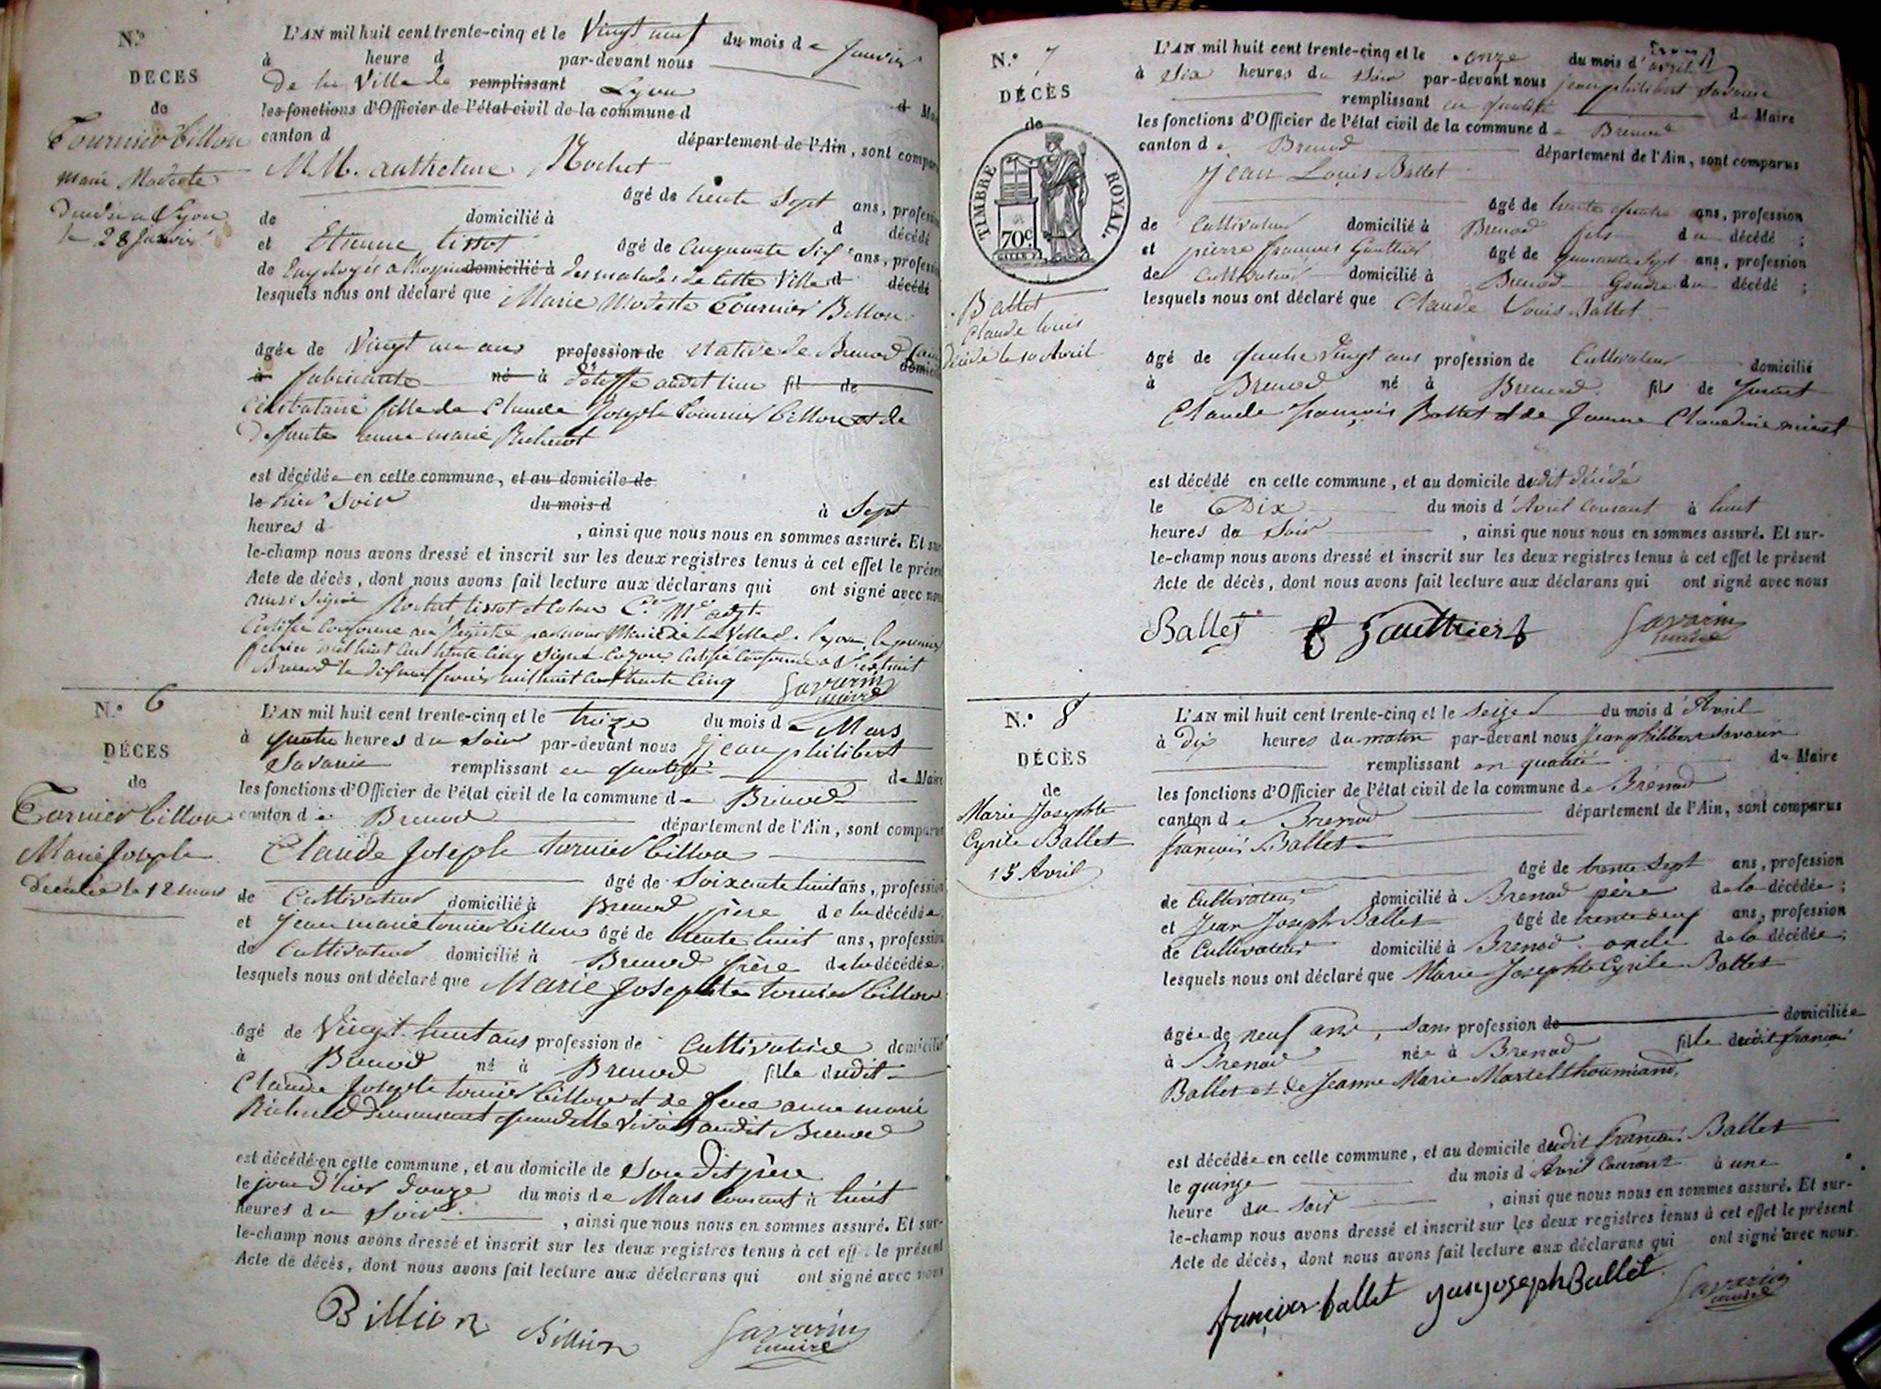 N.º
DÉCES
de
Tournier billon
marie Modeste
Décédée a Lyon
le 28 Janvier
L'AN mil huit cent trente-cinq et le Vingt neuf du mois de Janvier
à heure d par-devant nous
de la Ville de remplissant Lyon
les fonctions d'Officier de l'état civil de la commune d d Maire
canton d département de l'Ain, sont comparus
MM. anthelme Rochet
âgé de trente Sept ans, profession
de domicilié à d décédé
et Etienne tissot âgé de Cinquante Six ans, profession
de Employés a l'hospice domicilié à des malades de cette Ville d décédé
lesquels nous ont déclaré que Marie Modeste Tournier Billon
âgée de Vingt un ans profession de native de Brenod
à fabricante né à d'étoffe audit lieu fil de
Célibataire fille de Claude Joseph Tournier billon et de
Defunte anne marie Richerot
est décédée en cette commune, et au domicile de
le hier Soir du mois d à Sept
heures d , ainsi que nous nous en sommes assuré. Et sur-
le-champ nous avons dressé et inscrit sur les deux registres tenus à cet effet le présent
Acte de décès, dont nous avons fait lecture aux déclarans qui ont signé avec nous
ainsi Signé Rochet tissot et
Certifié Conforme au Registre par nous Maire de la Ville de Lyon le premier
fevrier mil huit Cent trente Cinq Signé certifié Conforme a l'extrait
Brenod le Dix neuf fevrier mil huit Cent trente Cinq Savarin
maire
N.º 6
DÉCES
de
Tornier billon
Marie Josephe
Décédée le 12 mars
L'AN mil huit cent trente-cinq et le treize du mois de Mars
à quatre heures du Soir par-devant nous Jean philibert
Savarin remplissant en qualité de Maire
les fonctions d'Officier de l'état civil de la commune de Brenod
canton de Brenod département de l'Ain, sont comparus
Claude Joseph tornier billon
âgé de Soixante huit ans, profession
de Cultivateur domicilié à Brenod père de la décédée,
et Jean marie tornier billon âgé de trente huit ans, profession
de Cultivateur domicilié à Brenod frère de la décédée;
lesquels nous ont déclaré que Marie Josephte tornier billon
âgé de Vingt huit ans profession de Cultivatrice domicilié
à Brenod né à Brenod fille dudit
Claude Joseph tornier billon et de feue anne marie
Richerod demeurant quand elle vivait audit Brenod
est décédé en cette commune, et au domicile de Son Dit père
le jour d'hier douze du mois de Mars Courant à huit
heures du Soir , ainsi que nous nous en sommes assuré. Et sur-
le-champ nous avons dressé et inscrit sur les deux registres tenus à cet effet le présent
Acte de décès, dont nous avons fait lecture aux déclarans qui ont signé avec nous
Billion Billion Savarin
maire
N.º 7
DÉCÈS
de
TIMBRE ROYAL.
70c
Ballet
Claude louis
Décédé le 10 Avril
L'AN mil huit cent trente-cinq et le onze du mois d'avril
à Six heures du Soir par-devant nous jean philibert Savarin
remplissant en qualité de Maire
les fonctions d'Officier de l'état civil de la commune de Brenod
canton de Brenod département de l'Ain, sont comparus
Jean Louis Ballet
âgé de trente quatre ans, profession
de Cultivateur domicilié à Brenod fils du décédé;
et pierre françois Gauthier âgé de quarante Sept ans, profession
de Cultivateur domicilié à Brenod Gendre du décédé;
lesquels nous ont déclaré que Claude Louis Ballet
âgé de quatre Vingt ans profession de Cultivateur domicilié
à Brenod né à Brenod fils de
Claude françois Ballet et de Jeanne Claudine
est décédé en cette commune, et au domicile dudit décédé
le Dix du mois d'Avril Courant à huit
heures du Soir , ainsi que nous nous en sommes assuré. Et sur-
le-champ nous avons dressé et inscrit sur les deux registres tenus à cet effet le présent
Acte de décès, dont nous avons fait lecture aux déclarans qui ont signé avec nous
Ballet Gauthier Savarin
maire
N.º 8
DÉCÈS
de
Marie Josephte
Cyrile Ballet
15 Avril
L'AN mil huit cent trente-cinq et le seize du mois d'Avril
à Dix heures du matin par-devant nous Jean philibert Savarin
remplissant en qualité de Maire
les fonctions d'Officier de l'état civil de la commune de Brénod
canton de Brenod département de l'Ain, sont comparus
françois Ballet
âgé de trente Sept ans, profession
de Cultivateur domicilié à Brenod père de la décédée;
et Jean Joseph Ballet âgé de trente neuf ans, profession
de Cultivateur domicilié à Brenod oncle de la décédée;
lesquels nous ont déclaré que Marie Josephte Cyrile Ballet
âgée de neuf ans, sans profession de domiciliée
à Brenod née à Brenod fille dudit françois
Ballet et de Jeanne Marie Martel thoumiand,
est décédée en cette commune, et au domicile dudit françois Ballet
le quinze du mois d'Avril Courant à une
heure du soir , ainsi que nous nous en sommes assuré. Et sur-
le-champ nous avons dressé et inscrit sur les deux registres tenus à cet effet le présent
Acte de décès, dont nous avons fait lecture aux déclarans qui ont signé avec nous.
françois ballet jean joseph Ballet Savarin
maire